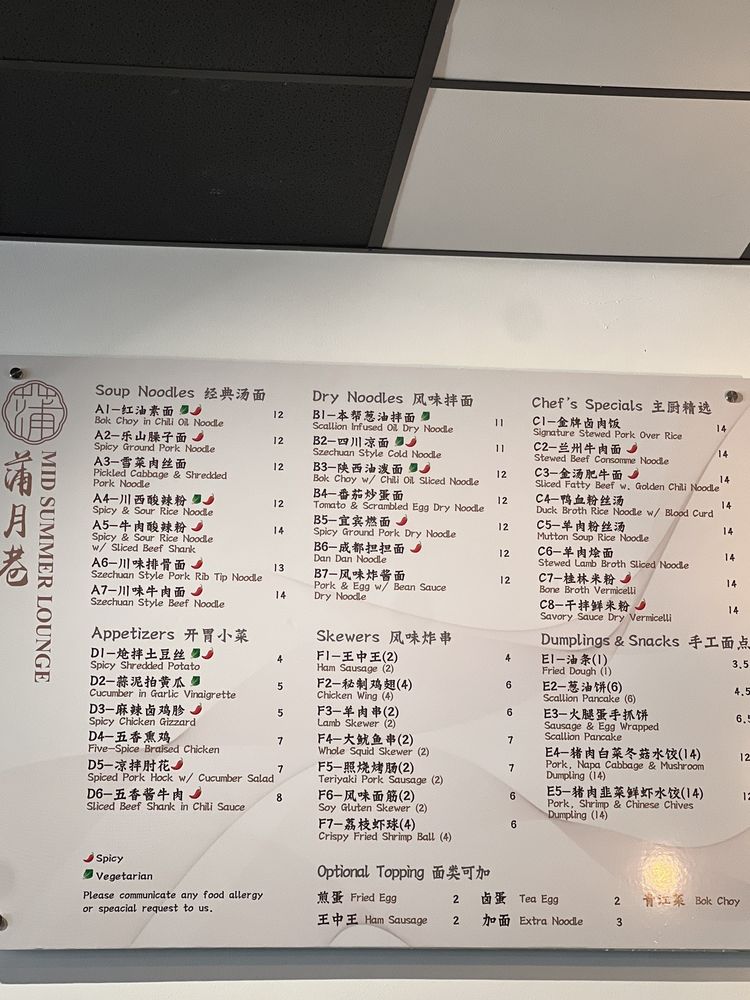 蒲
蒲月巷
MID SUMMER LOUNGE
Soup Noodles 经典汤面
A1-红油素面 12
Bok Choy in Chili Oil Noodle
A2-乐山臊子面 12
Spicy Ground Pork Noodle
A3-雪菜肉丝面
Pickled Cabbage & Shredded 12
Pork Noodle
A4-川西酸辣粉 12
Spicy & Sour Rice Noodle
A5-牛肉酸辣粉 14
Spicy & Sour Rice Noodle
w/ Sliced Beef Shank
A6-川味排骨面 13
Szechuan Style Pork Rib Tip Noodle
A7-川味牛肉面 14
Szechuan Style Beef Noodle
Appetizers 开胃小菜
D1-炝拌土豆丝 4
Spicy Shredded Potato
D2-蒜泥拍黄瓜 5
Cucumber in Garlic Vinaigrette
D3-麻辣卤鸡胗 5
Spicy Chicken Gizzard
D4-五香熏鸡 7
Five-Spice Braised Chicken
D5-凉拌肘花 7
Spiced Pork Hock w/ Cucumber Salad
D6-五香酱牛肉 8
Sliced Beef Shank in Chili Sauce
Spicy
Vegetarian
Please communicate any food allergy
or speacial request to us.
Dry Noodles 风味拌面
B1-本帮葱油拌面 11
Scallion Infused Oil Dry Noodle
B2-四川凉面 11
Szechuan Style Cold Noodle
B3-陕西油泼面 12
Bok Choy w/ Chili Oil Sliced Noodle
B4-番茄炒蛋面 12
Tomato & Scrambled Egg Dry Noodle
B5-宜宾燃面 12
Spicy Ground Pork Dry Noodle
B6-成都担担面 12
Dan Dan Noodle
B7-风味炸酱面 12
Pork & Egg w/ Bean Sauce
Dry Noodle
Skewers 风味炸串
F1-王中王(2) 4
Ham Sausage (2)
F2-秘制鸡翅(4) 6
Chicken Wing (4)
F3-羊肉串(2) 6
Lamb Skewer (2)
F4-大鱿鱼串(2) 7
Whole Squid Skewer (2)
F5-照烧烤肠(2) 7
Teriyaki Pork Sausage (2)
F6-风味面筋(2) 6
Soy Gluten Skewer (2)
F7-荔枝虾球(4) 6
Crispy Fried Shrimp Ball (4)
Chef's Specials 主厨精选
C1-金牌卤肉饭 14
Signature Stewed Pork Over Rice
C2-兰州牛肉面 14
Stewed Beef Consomme Noodle
C3-金汤肥牛面 14
Sliced Fatty Beef w. Golden Chili Noodle
C4-鸭血粉丝汤 14
Duck Broth Rice Noodle w/ Blood Curd
C5-羊肉粉丝汤 14
Mutton Soup Rice Noodle
C6-羊肉烩面 14
Stewed Lamb Broth Sliced Noodle
C7-桂林米粉 14
Bone Broth Vermicelli
C8-干拌鲜米粉 14
Savory Sauce Dry Vermicelli
Dumplings & Snacks 手工面点
E1-油条(1) 3.5
Fried Dough (1)
E2-葱油饼(6) 4.5
Scallion Pancake (6)
E3-火腿蛋手抓饼 6.5
Sausage & Egg Wrapped
Scallion Pancake
E4-猪肉白菜冬菇水饺(14)
Pork, Napa Cabbage & Mushroom
Dumpling (14)
E5-猪肉韭菜鲜虾水饺(14)
Pork, Shrimp & Chinese Chives
Dumpling (14)
Optional Topping 面类可加
煎蛋 Fried Egg 2 卤蛋 Tea Egg 2 青江菜 Bok Choy
王中王 Ham Sausage 2 加面 Extra Noodle 3